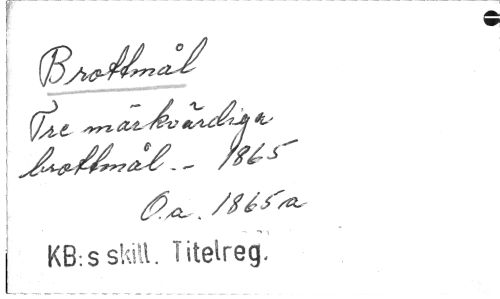 Brottmål
Tre märkvärdiga
brottmål. - 1865
O.a. 1865 a
KB:s skill. Titelreg.